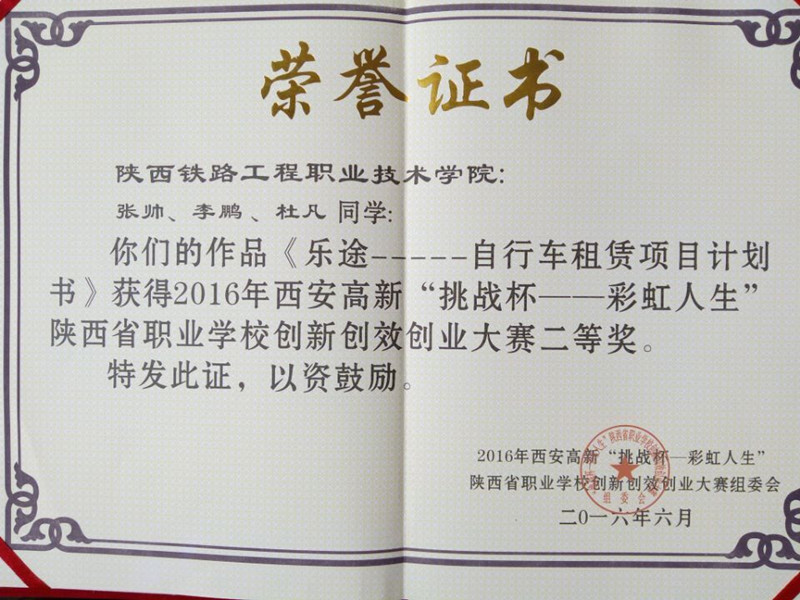 荣誉证书
陕西铁路工程职业技术学院：
张帅、李鹏、杜凡 同学：
你们的作品《乐途-----自行车租赁项目计划
书》获得2016年西安高新“挑战杯——彩虹人生”
陕西省职业学校创新创效创业大赛二等奖。
特发此证，以资鼓励。
2016年西安高新“挑战杯—彩虹人生”
陕西省职业学校创新创效创业大赛组委会
组委会
二〇一六年六月